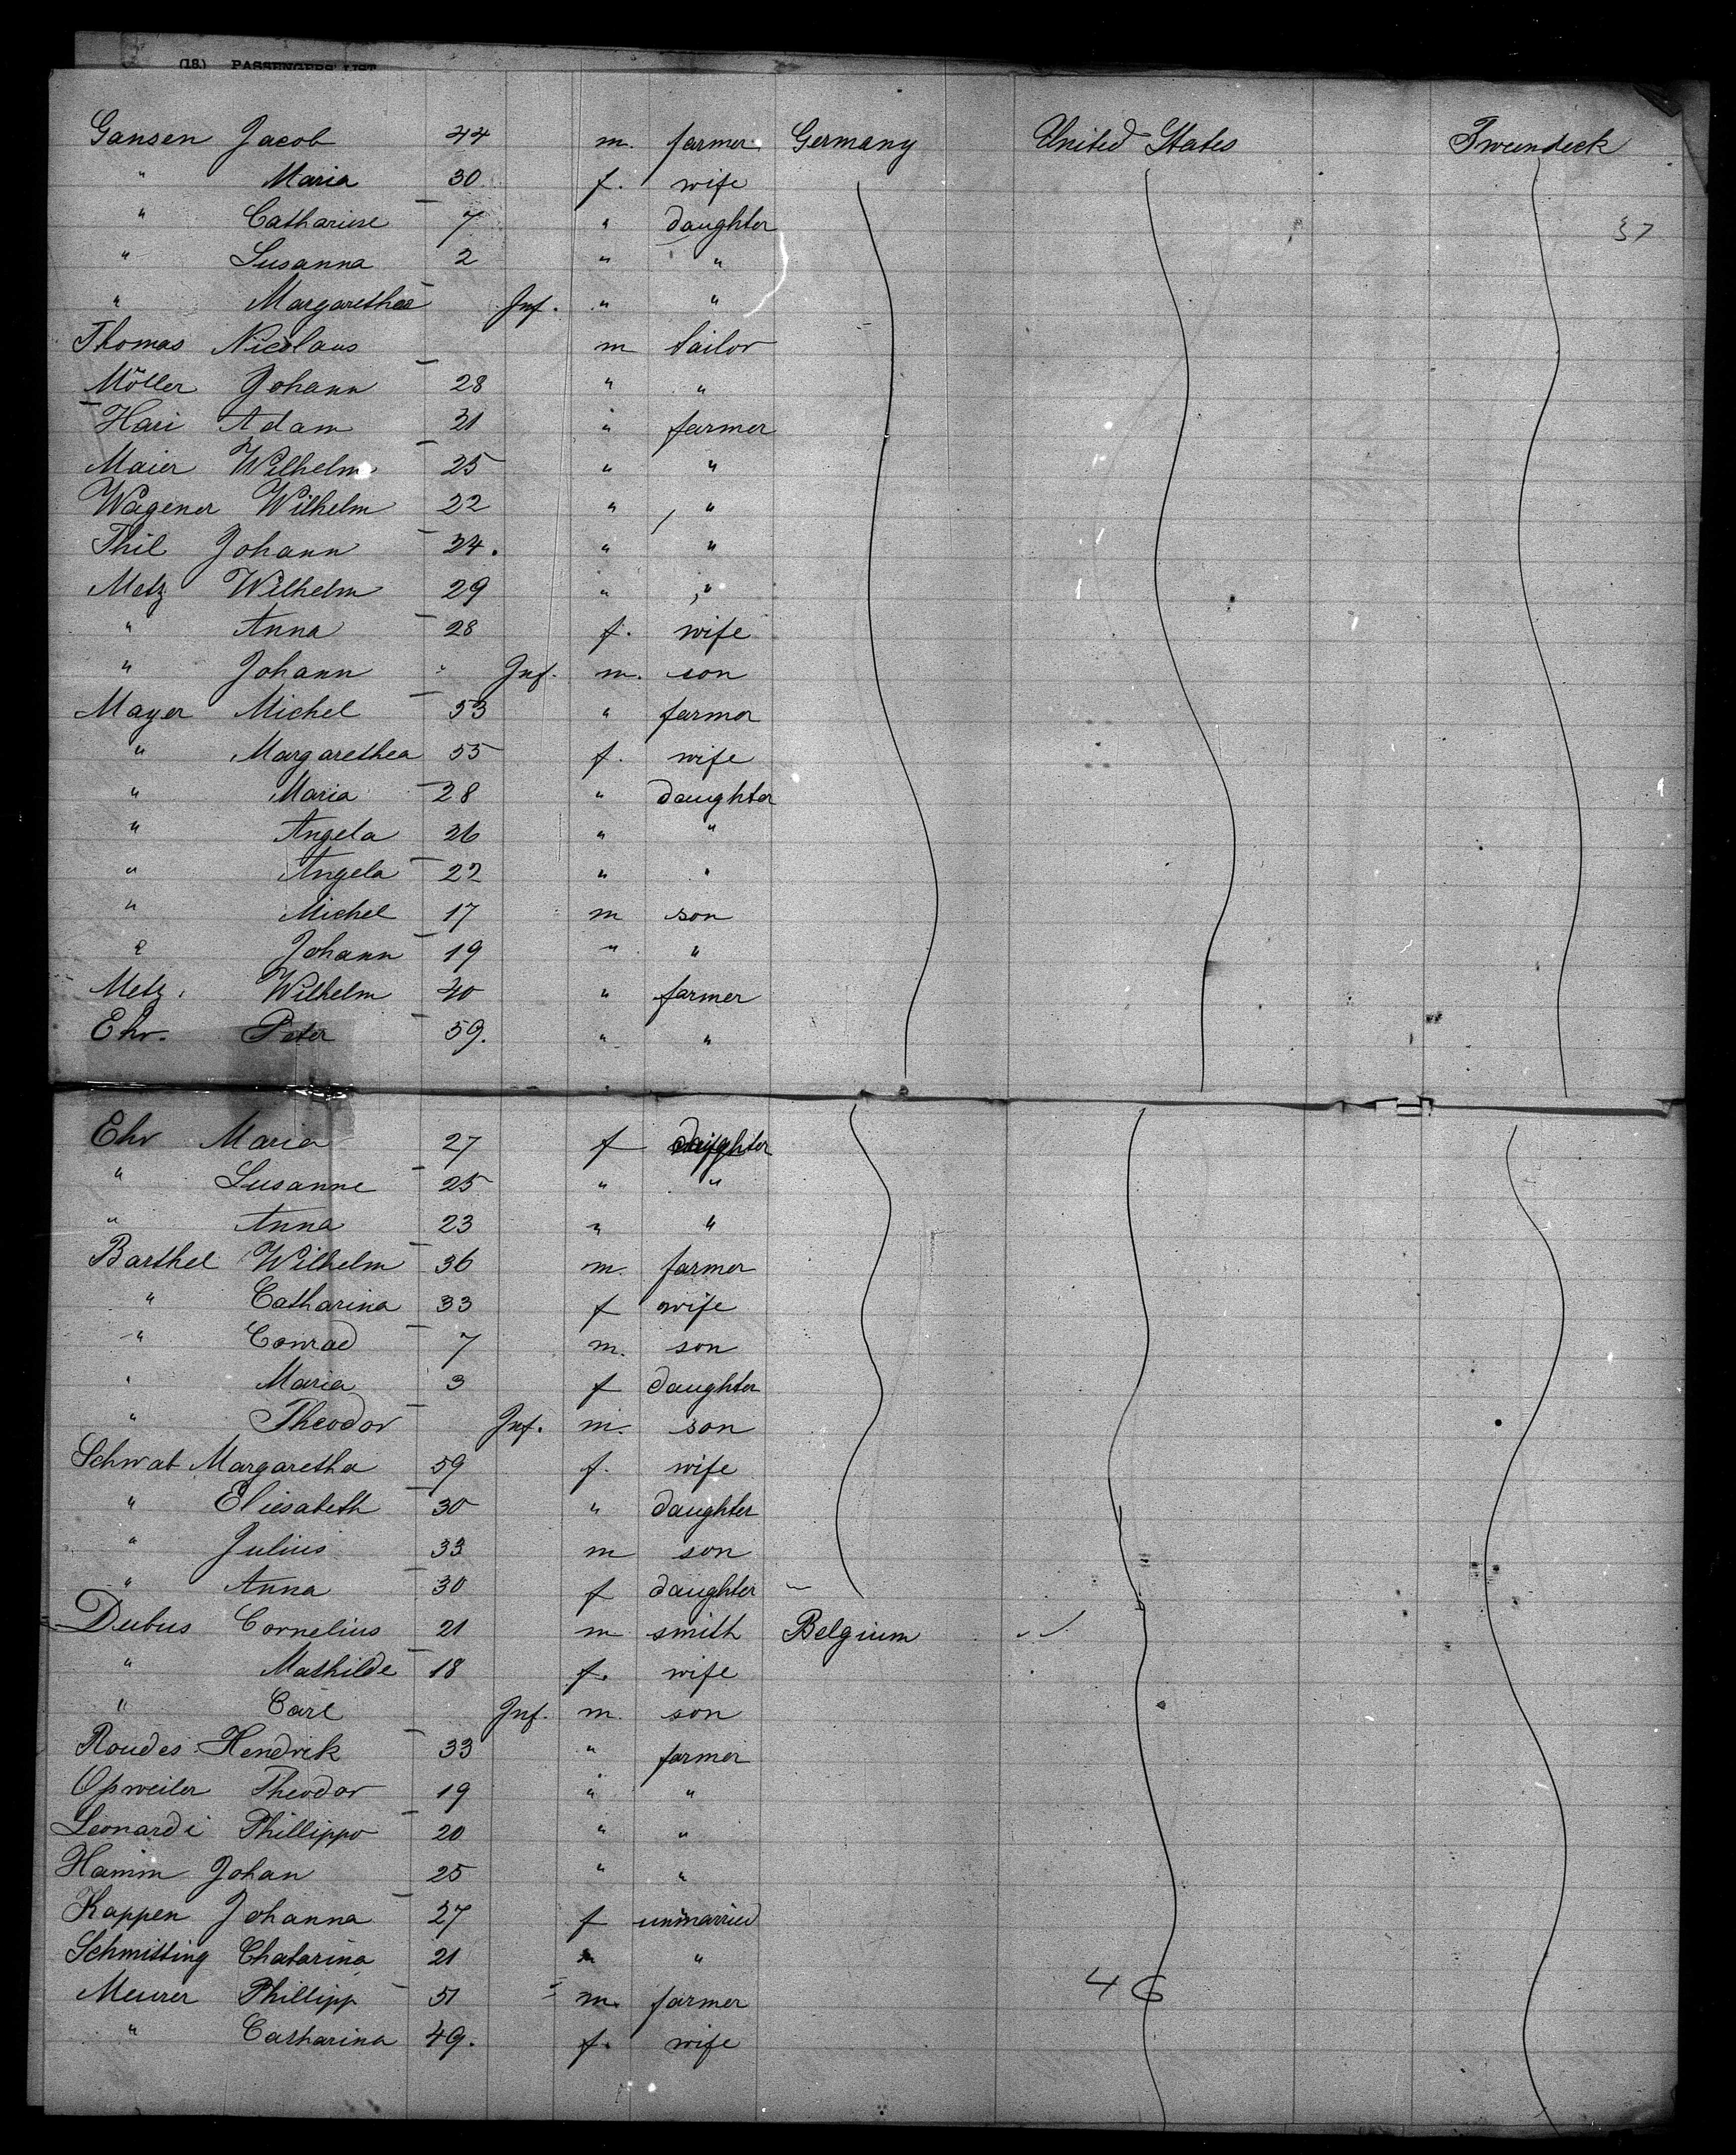 (18) PASSENGERS' LIST
Gansen Jacob 44 m. farmer Germany United States Tweendeck
" Maria 30 f. wife
" Catharine 7 " daughter 37
" Susanna 2 " "
" Margarethea Inf. " "
Thomas Nicolaus m tailor
Möller Johann 28 " "
Hari Adam 31 " farmer
Maier Wilhelm 25 " "
Wagener Wilhelm 22 " "
Thil Johann 24. " "
Metz Wilhelm 29 " "
" Anna 28 f. wife
" Johann " Inf. m. son
Mayer Michel 53 " farmer
" Margarethea 55 f. wife
" Maria 28 " daughter
" Angela 26 " "
" Angela 22 " "
" Michel 17 m son
" Johann 19 " "
Metz. Wilhelm 40 " farmer
Ehr. Peter 59. " "
Ehr Maria 27 f daughter
" Susanne 25 " "
" Anna 23 " "
Barthel Wilhelm 36 m. farmer
" Catharina 33 f wife
" Conrad 7 m. son
" Maria 3 f daughter
" Theodor Inf. m. son
Schwab Margaretha 59 f. wife
" Eliesabeth 30 " daughter
" Julius 33 m son
" Anna 30 f daughter
Dubus Cornelius 21 m smith Belgium
" Mathilde 18 f. wife
" Carl Inf. m. son
Roudes Hendrik 33 " farmer
Opweiler Theodor 19 " "
Leonardi Phillippo 20 " "
Hamm Johan 25 " "
Kappen Johanna 27 f unmarried
Schmitting Chatarina 21 " "
Meurer Phillipp 51 m. farmer 46
" Catharina 49. f. wife